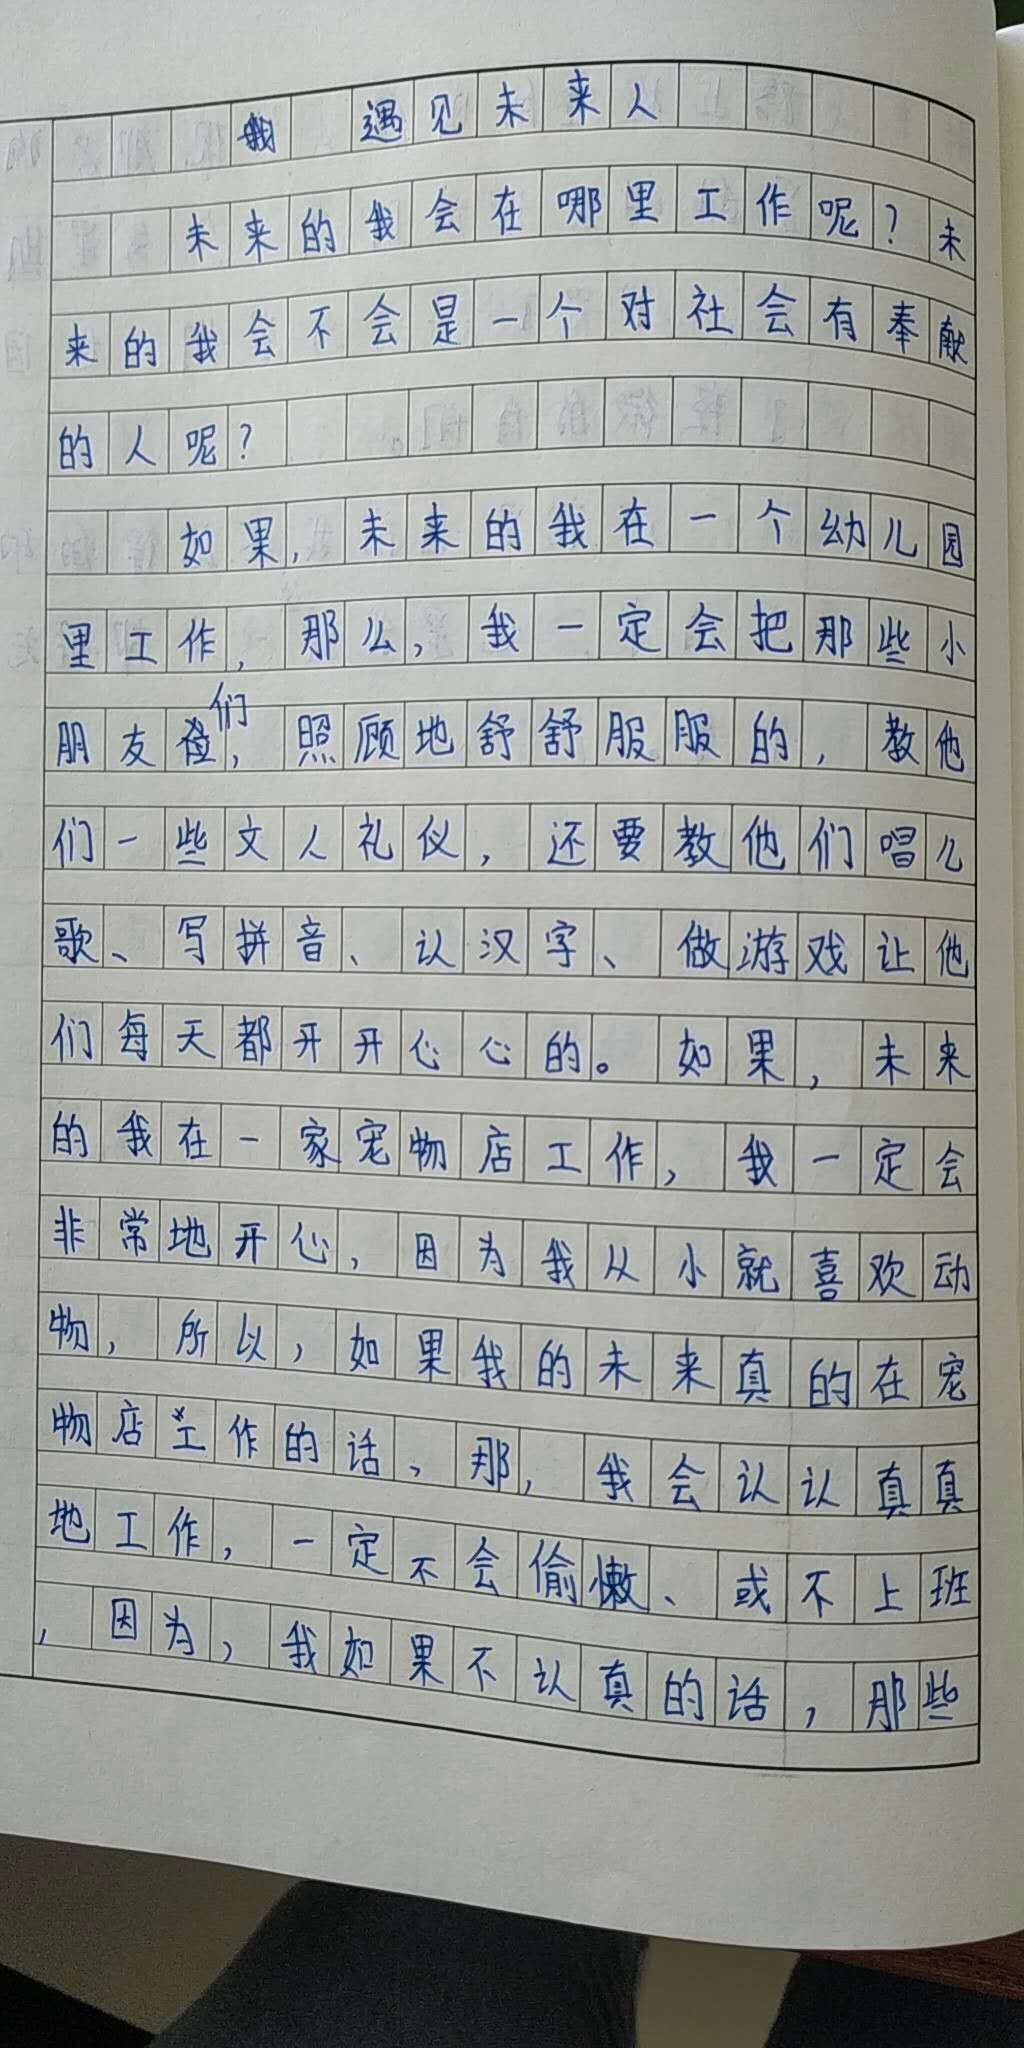 我 遇见未来人
未来的我会在哪里工作呢？未
来的我会不会是一个对社会有奉献
的人呢？
如果，未来的我在一个幼儿园
里工作，那么，我一定会把那些小
朋友们，照顾地舒舒服服的，教他
们一些文人礼仪，还要教他们唱儿
歌、写拼音、认汉字、做游戏让他
们每天都开开心心的。如果，未来
的我在一家宠物店工作，我一定会
非常地开心，因为我从小就喜欢动
物，所以，如果我的未来真的在宠
物店工作的话，那，我会认认真真
地工作，一定不会偷懒、或不上班
，因为，我如果不认真的话，那些